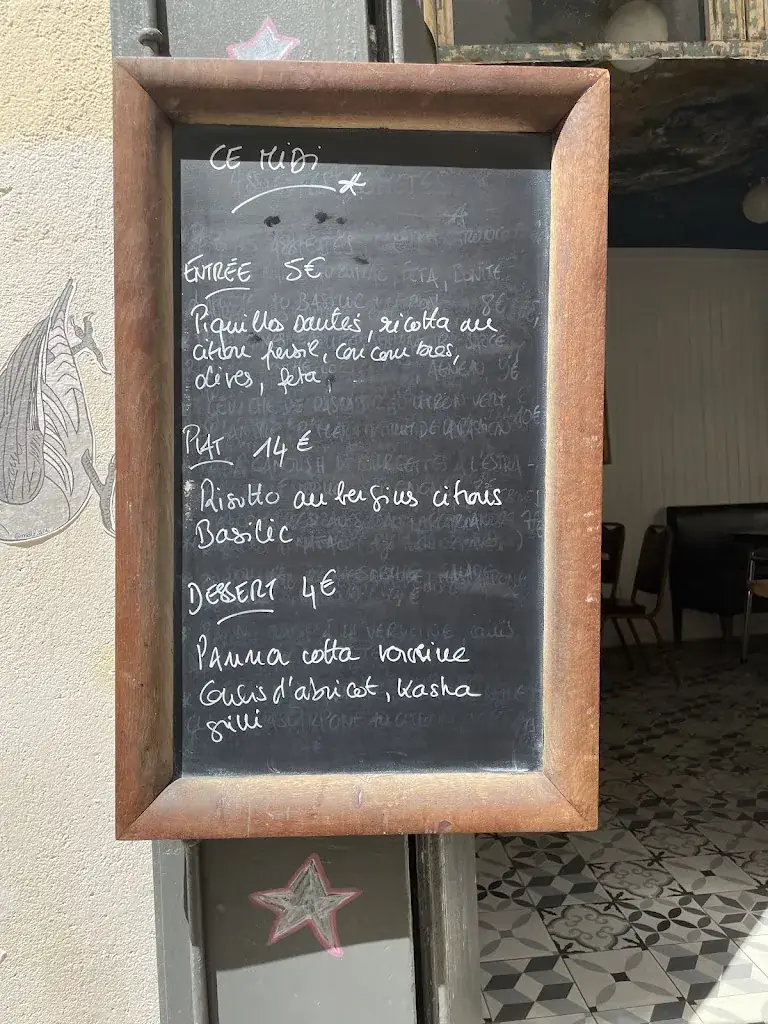 CE MiDi
ENTRÉE 5€
Piquillos sautés, ricotta au
citron persil, concombres,
olives, feta
PLAT 14€
Risotto aubergines citrons
Basilic
DESSERT 4€
PANNA cotta verveine
Coulis d'abricot, Kasha
grillé